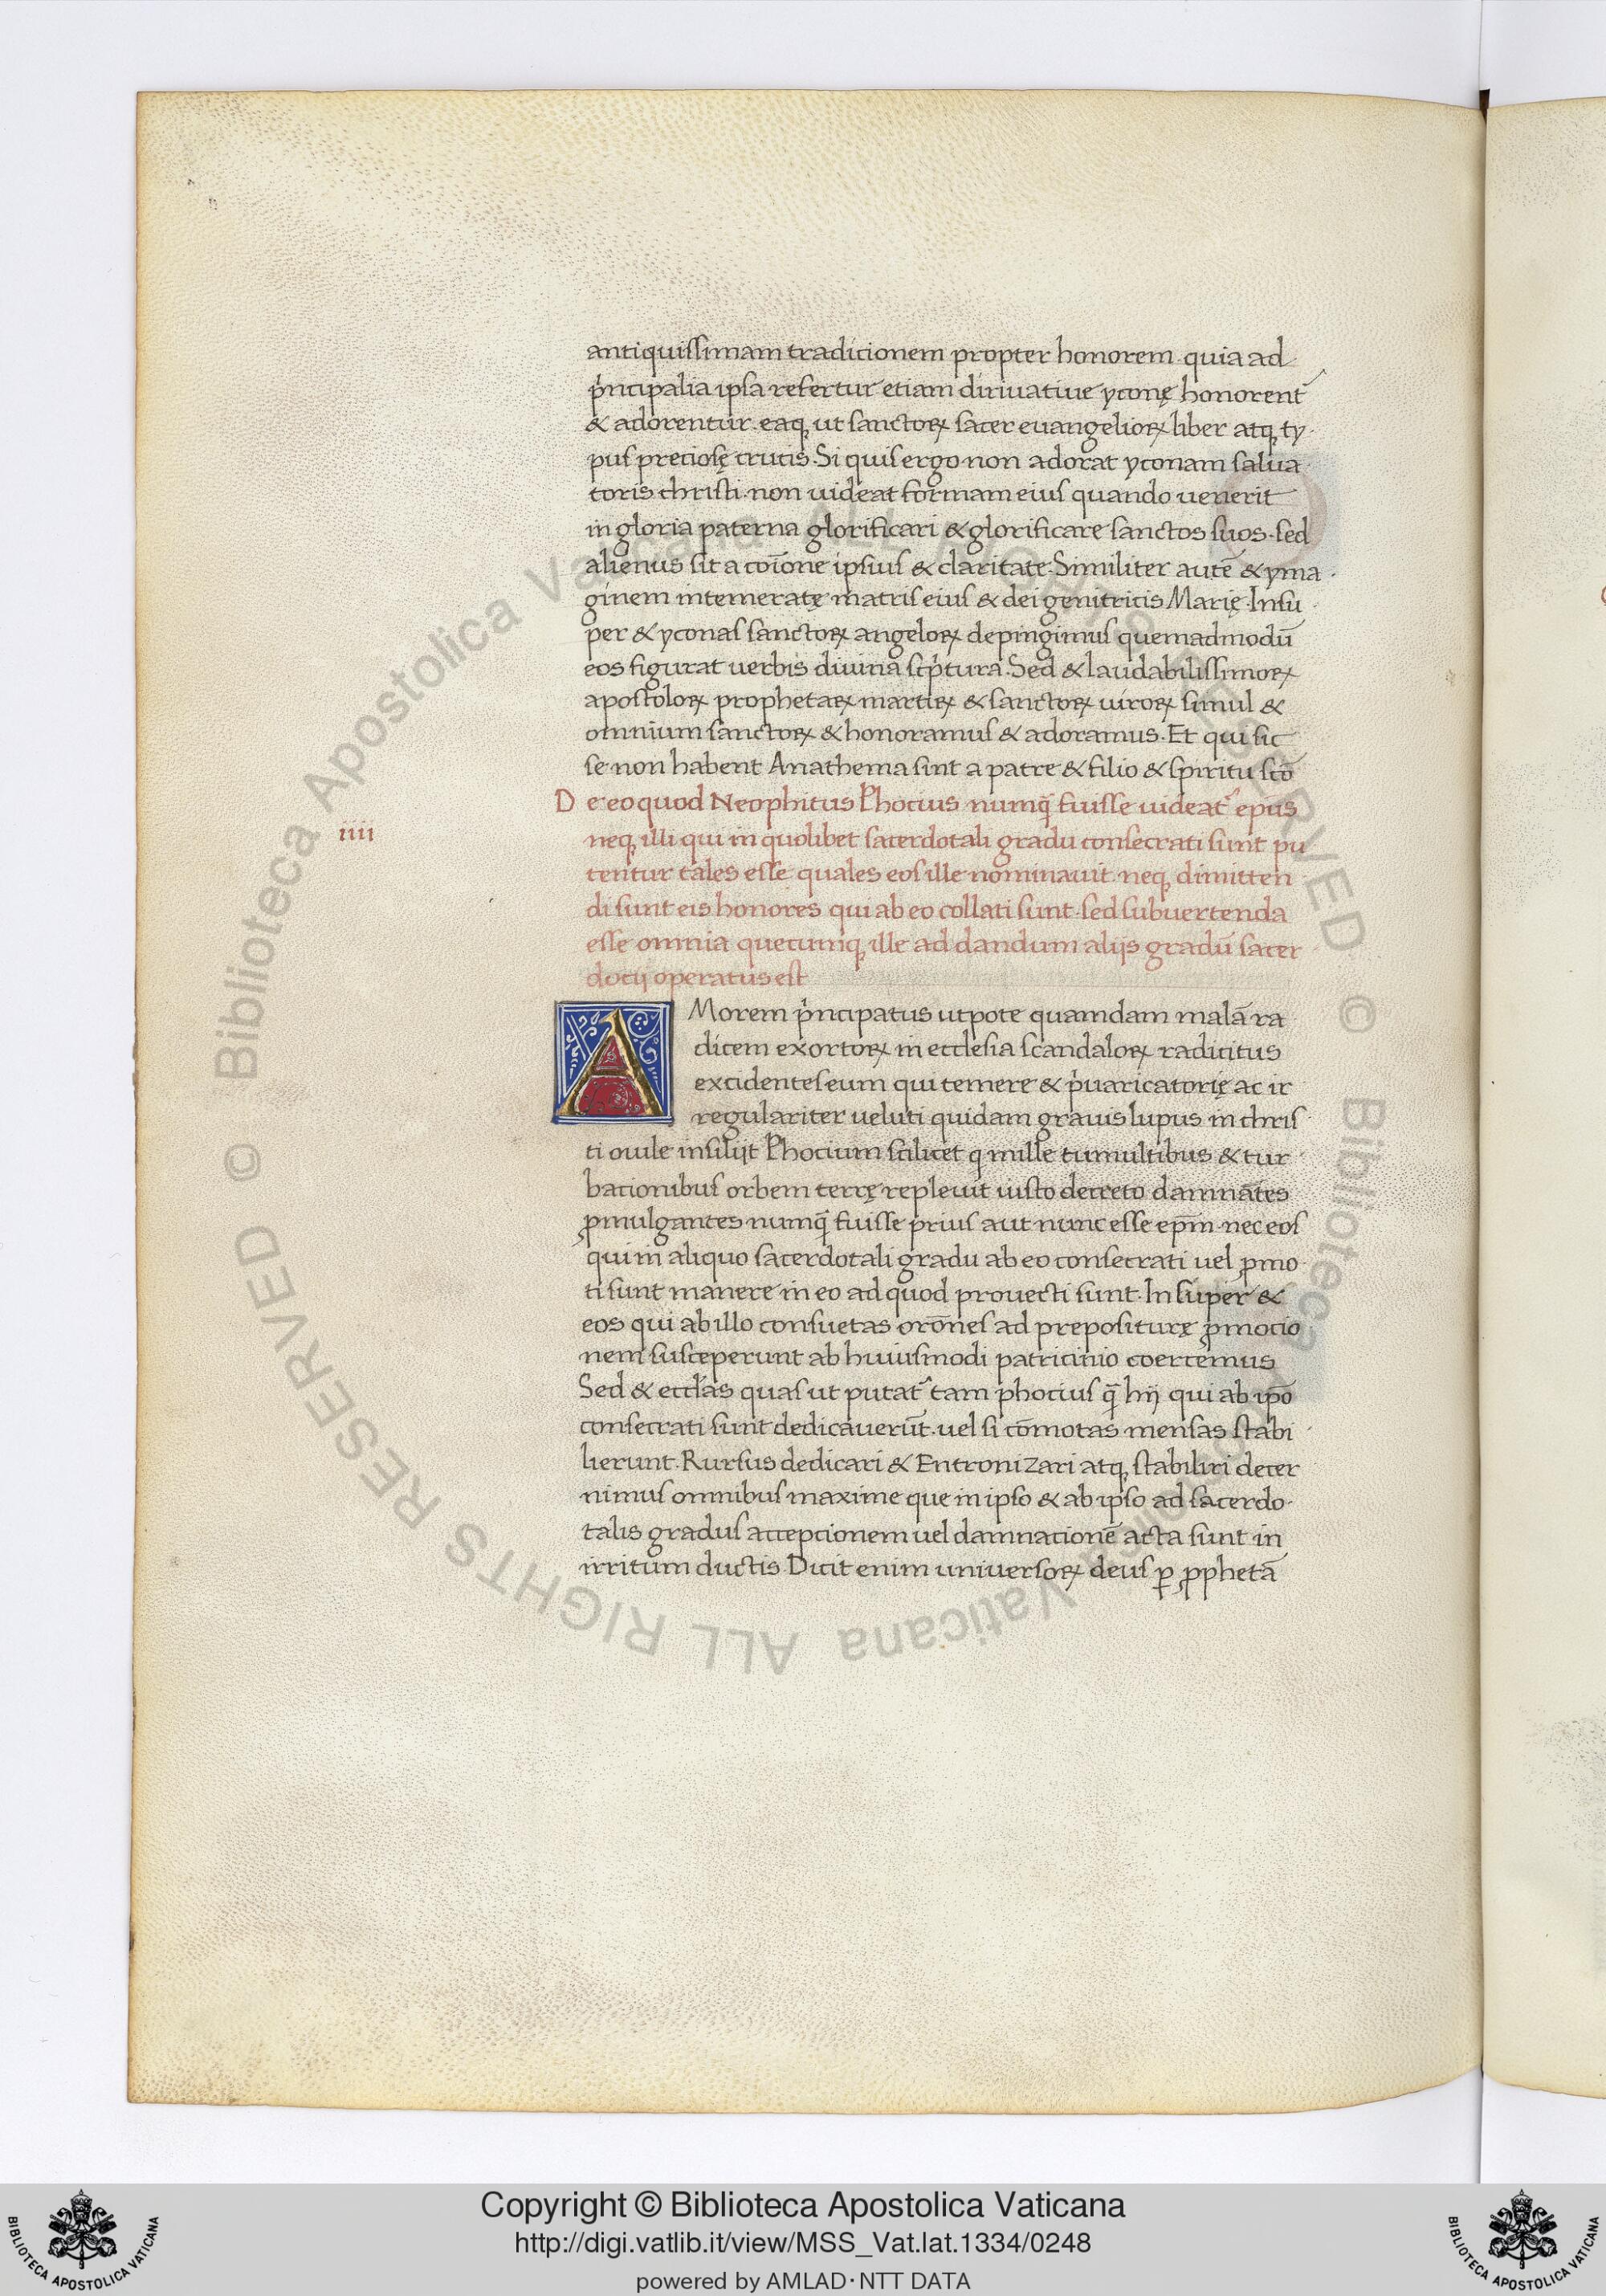 antiquissimam tradicionem propter honorem. quia ad
p̍ncipalia ipsa refertur etiam diriuatiue yconę honorent᷑
& adorentur. eaq; ut sanctoꝝ sacer euangelioꝝ liber atq; ty
pus preciosę crucis. Si quis ergo non adorat yconam salua
toris christi. non uideat formam eius quando uenerit
in gloria paterna glorificari & glorificare sanctos suos. sed
alienus sit a coīone ipsius & claritate. Similiter autē & yma
ginem intemeratę matris eius & dei genitricis Marię. Insu
per & yconas sanctoꝝ angeloꝝ depingimus quemadmodū
eos figurat uerbis diuina scp̍tura. Sed & laudabilissimoꝝ
apostoloꝝ prophetaꝝ martiꝝ & sanctoꝝ uiroꝝ simul &
omnium sanctoꝝ & honoramus & adoramus. Et qui sic
se non habent Anathema sint a patre & filio & spiritu scō
De eo quod Neophitus Phocius numq̄ fuisse uideat᷑ ep̄us
iiii
neq; illi qui in quolibet sacerdotali gradu consecrati sunt pu
tentur tales esse quales eos ille nominauit. neq; dimitten
di sunt eis honores qui ab eo collati sunt. sed subuertenda
esse omnia quecumq; ille ad dandum alijs gradū sacer
docij operatus est
AMorem p̍ncipatus utpote quamdam malā ra
dicem exortoꝝ in ecclesia scandaloꝝ radicitus
excidentes eum qui temere & p̍uaricatorię ac ir
regulariter ueluti quidam grauis lupus in chris
ti ouile insilijt Phocium scilicet q mille tumultibus & tur
bacionibus orbem terrę repleuit iusto decreto damnātes
ꝓmulgantes numq̄ fuisse prius aut nunc esse ep̄m. nec eos
qui in aliquo sacerdotali gradu ab eo consecrati uel ꝓmo
ti sunt manere in eo ad quod prouecti sunt. Insuper &
eos qui ab illo consuetas orōnes ad prepositurę ꝓmocio
nem susceperunt ab huiusmodi patricinio coercemus
Sed & eccl̄as quas ut putat᷑ tam phocius q̄ hij qui ab ipō
consecrati sunt dedicauerūt. uel si cōmotas mensas stabi
lierunt. Rursus dedicari & Entronizari atq; stabiliri decer
nimus omnibus maxime que in ipso & ab ipso ad sacerdo
talis gradus accepcionem uel damnacionē acta sunt in
irritum ductis Dicit enim uniuersoꝝ deus ꝑ ꝓphetā
© Biblioteca Apostolica Vaticana ALL RIGHTS RESERVED
© Biblioteca Apostolica Vaticana ALL RIGHTS RESERVED
Copyright © Biblioteca Apostolica Vaticana
http://digi.vatlib.it/view/MSS_Vat.lat.1334/0248
powered by AMLAD·NTT DATA
BIBLIOTECA APOSTOLICA VATICANA
BIBLIOTECA APOSTOLICA VATICANA